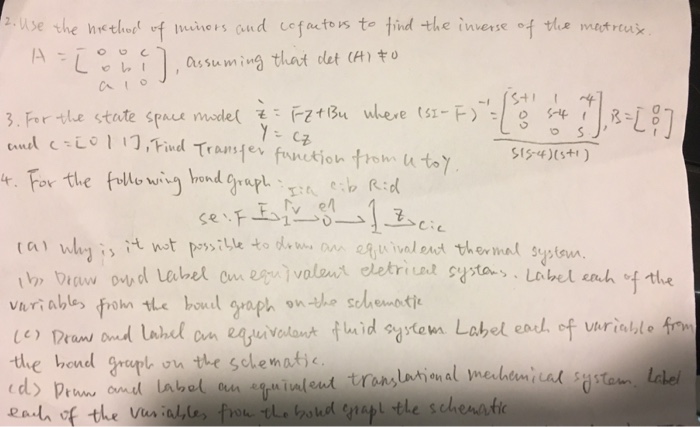 2. Use the method of minors and cofactors to find the inverse of the matreux.
A = [ 0 0 c
0 b 1
a 1 0 ], assuming that det (A) ≠ 0
3. For the state space model ż = Fz+Bu where (sI-F)⁻¹ = [ s+1 1 -4
0 s-4 1
0 0 s ], B = [ 0
0
1 ]
s(s-4)(s+1)
y = cz
and c = [0 1 1], Find Transfer function from u to y.
4. For the following bond graph: I:a c:b R:d
se:F
c:c
(a) why is it not possible to draw an equivalent thermal system.
(b) Draw and Label an equivalent eletrical systems. Label each of the
variables from the bond graph on the schematic
(c) Draw and label an equivalent fluid system. Label each of variable from
the bond graph on the schematic.
(d) Draw and label an equivalent translational mechanical system. Label
each of the variables from the bond graph the schematic